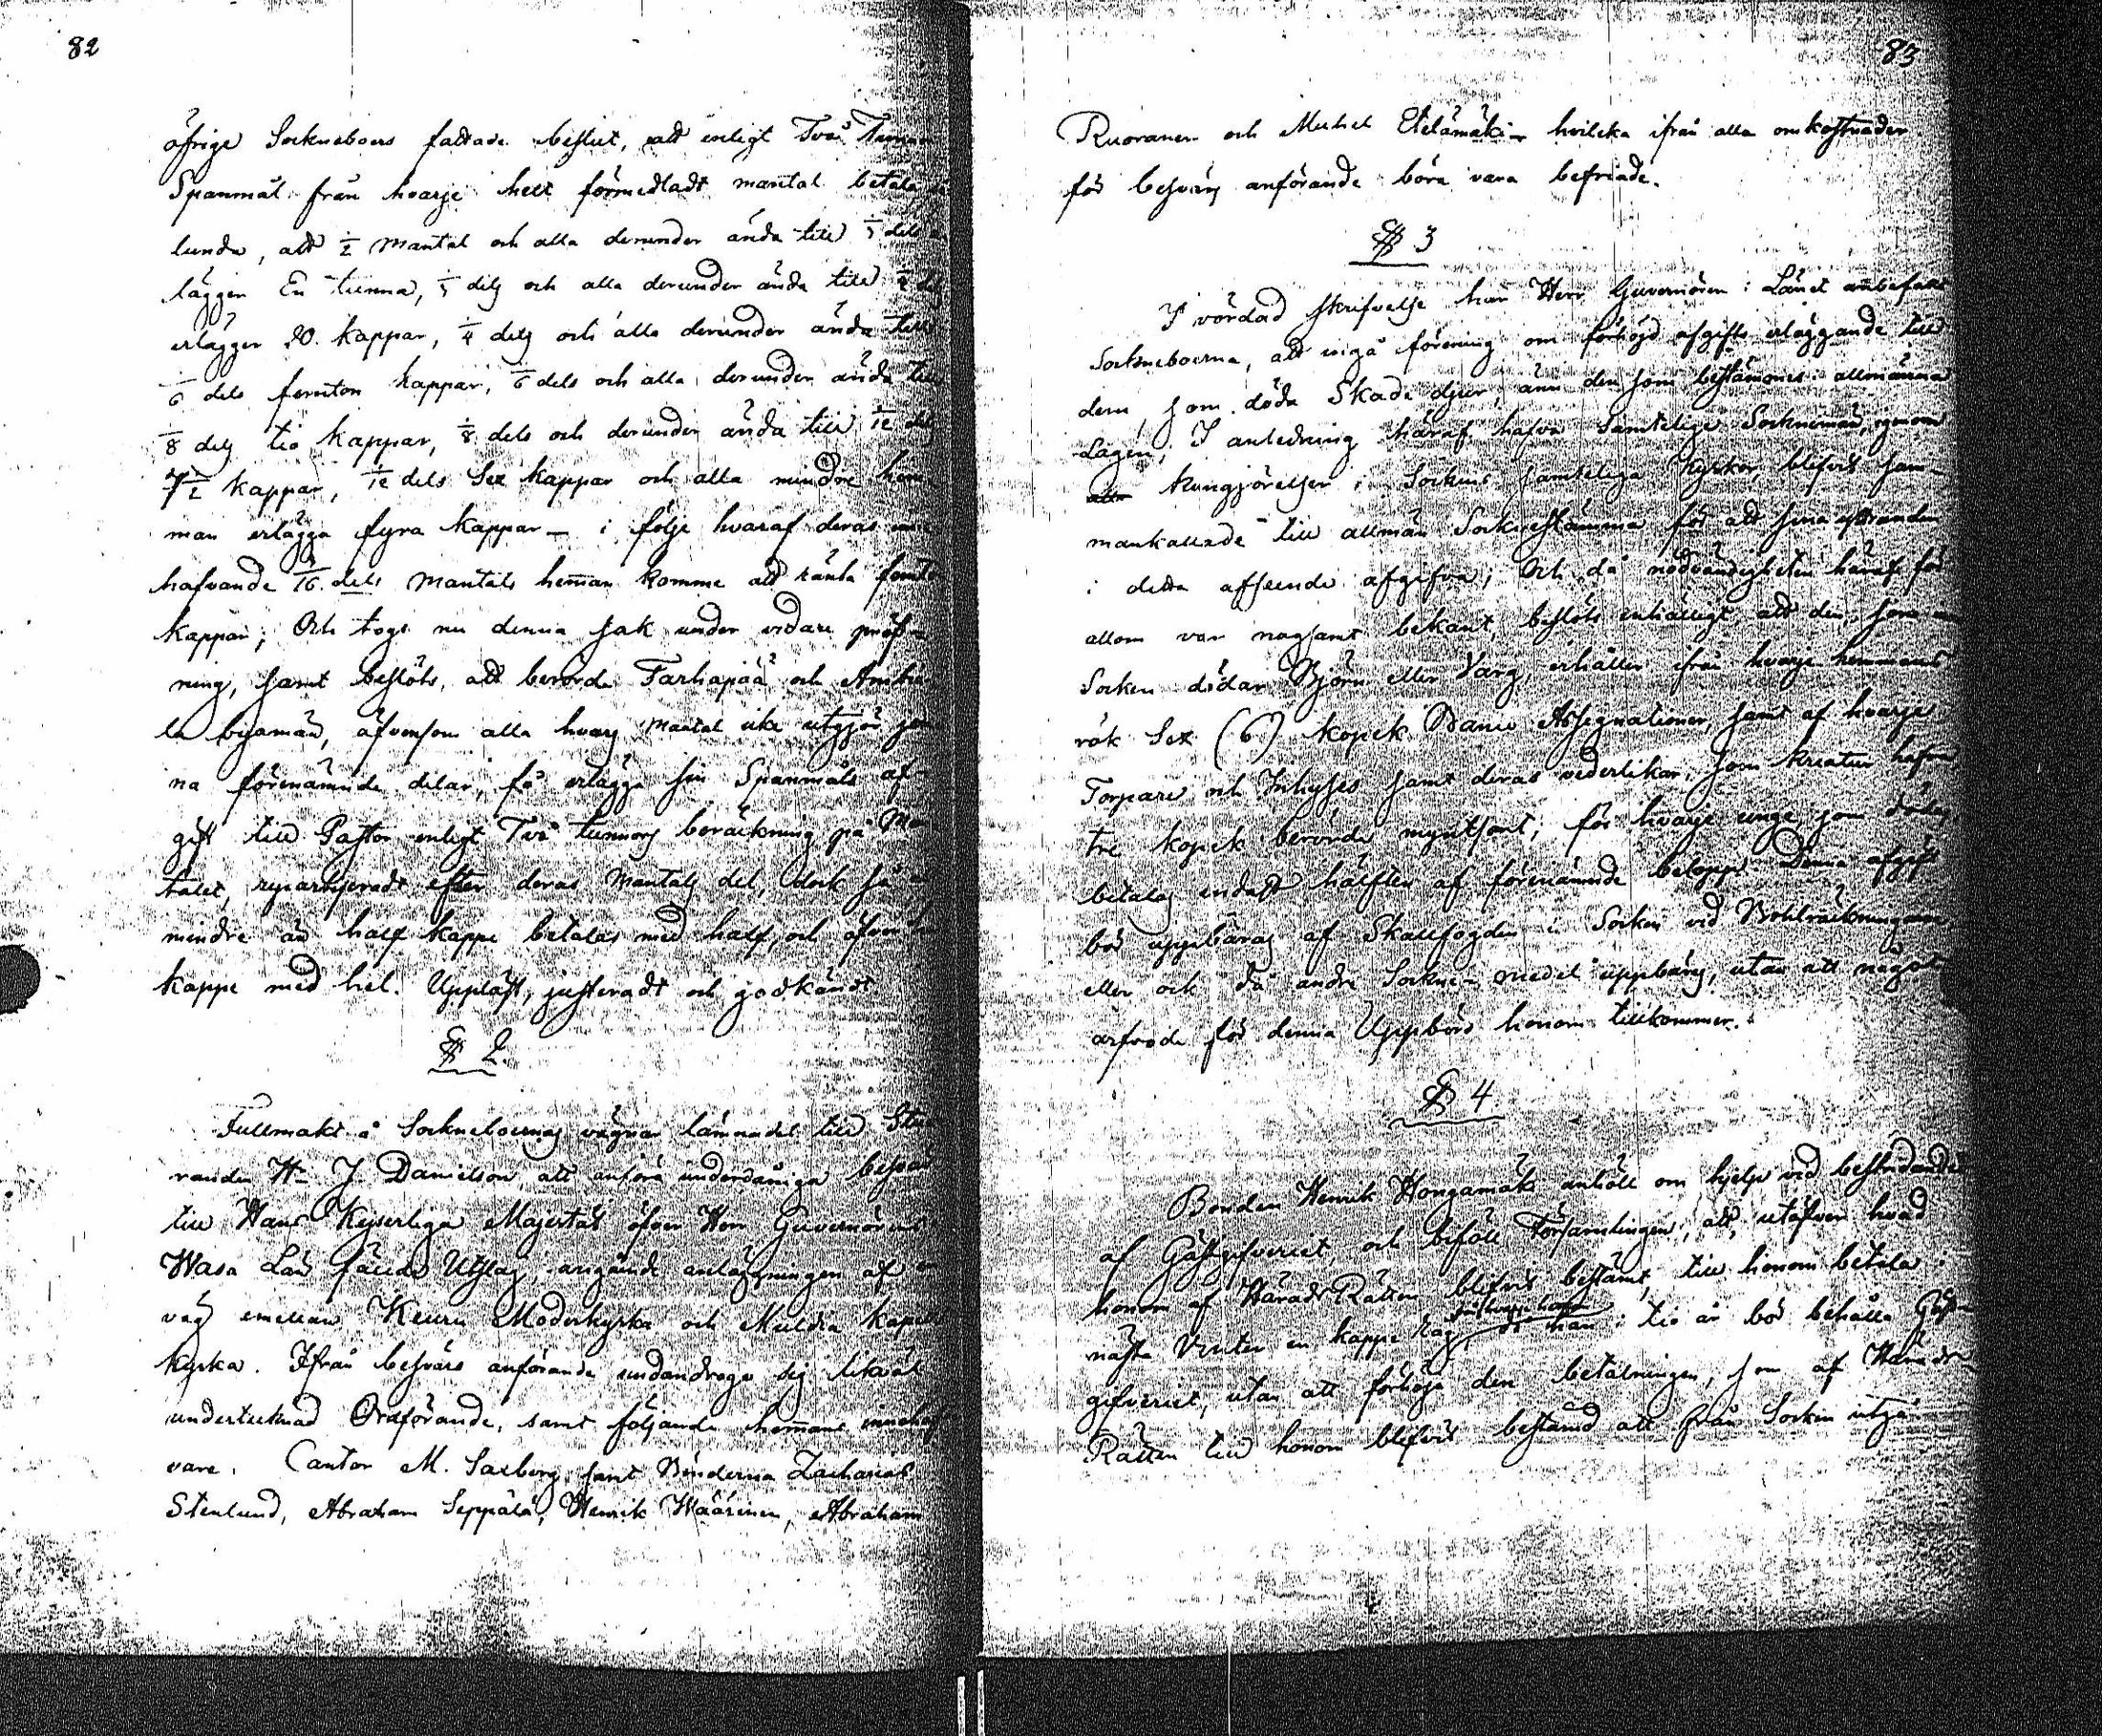 82
öfrige Sockneboers fattade beslut, att enligt Två Tunnor
Spanmål från hvarje helt förmedladt mantal betala så
lunda, att 1/2 mantal och alla derunder ända till 1/3 dels
lägger En tunna, 1/3 dels och alla derunder ända till 1/4 dels
erlägger 20. kappar, 1/4 dels och alla derunder ända till
1/6 dels femton kappar, 1/6 dels och alla derunder ända till
1/8 dels tio kappar, 1/8 dels och derunder ända till 1/12 del
7 1/2 kappar, 1/12 dels Sex kappar och alla mindre hem-
man erlägga fyra kappar – i följe hvaraf deras
hafvande 1/16. dels mantals hemman komme att ränta
kappar; Och togs nu denna sak under vidare pröf-
ning, samt beslöts, att berörde Tarhapää och
la byamän, äfvensom alla hvars mantal icke utgjör
na förenämnde delar, få erlägga sin Spanmåls af-
gift till Pastor enligt Två tunnors beräkning på Man
talet, reparterjeradt efter deras mantals del, dock så
mindre än half kappe betalas med half, och öfver
kappe med hel. Uppläst, justeradt och godkändt
§ 2.
Fullmakt å Sockneboernas vägnar lämnades till Stu-
randen H. J. Danielson, att anföra underdåniga besvär
till Hans Kejserliga Majestät öfver Herr Guvernörens
Wasa Län fälde Utslag, angående anläggningen af en
väg emellan Keuru Moderkyrka och Multia Kapell
kyrka. Ifrån besvärs anförande undandrogo sig likväl
undertecknad Ordförande, samt följande hemmans innehaf
vare. Cantor M. Saxberg, samt Bönderna Zacharias
Stenlund, Abraham Seppälä, Henrik Wäärinen, Abraham
83
Ruoranen och Michel Etelämäki – hvilcka ifrån alla omkostnader
för besvärs anförande böra vara befriade.
§ 3
I vördad skrifvelse har Herr Guvernören i Länet anbefalt
Sockneboerna, att ingå förening om förhöjd afgifts erläggande till
dem, som döda Skade djur, änn den som bestämmes i allmänna
Lagen; I anledning häraf hafva Samtelige Sockneman, genom
kungjörelser i Sockens samteliga Kyrkor, blifvit sam-
mankallade till allmän Sockenstämma för att sina
i detta afseende afgifva; Och då nödvändigheten häraf för
allom var nogsamt bekant, beslöts enhälligt, att den, som
Socken dödar Björn eller Varg, erhåller ifrån hvarje hemmans
rök Sex (6) kopek Banco Assignationer, samt af hvarje
Torpare och Inhyses samt deras vederlikar, som kreatur hafva
tre kopek berörde myntsort; för hvarje unge, som dödas,
betalas endast hälften af förenämnde belopp. Denna afgift
bör uppbäras af Skallfogden i Socken vid Bohlräkningarne
eller ock då andre Sockne-medel uppbärs, utan att något
arfvode för denna Uppbörd honom tillkommer.
§ 4
Bonden Henrik Hongamäki anhöll om hjelp vid bestridandet
af Gästgifveriet, och biföll Församlingen, att, utöfver hvad
honom af Härads Rätten blifvit bestämt, till honom betala
nästa Vinter en kappe Råg då han i tio år bör behålla Gäst-
gifveriet, utan att förhöja den betalningen, som af Härads
Rätten till honom blifvit bestämd att från Socken utgå